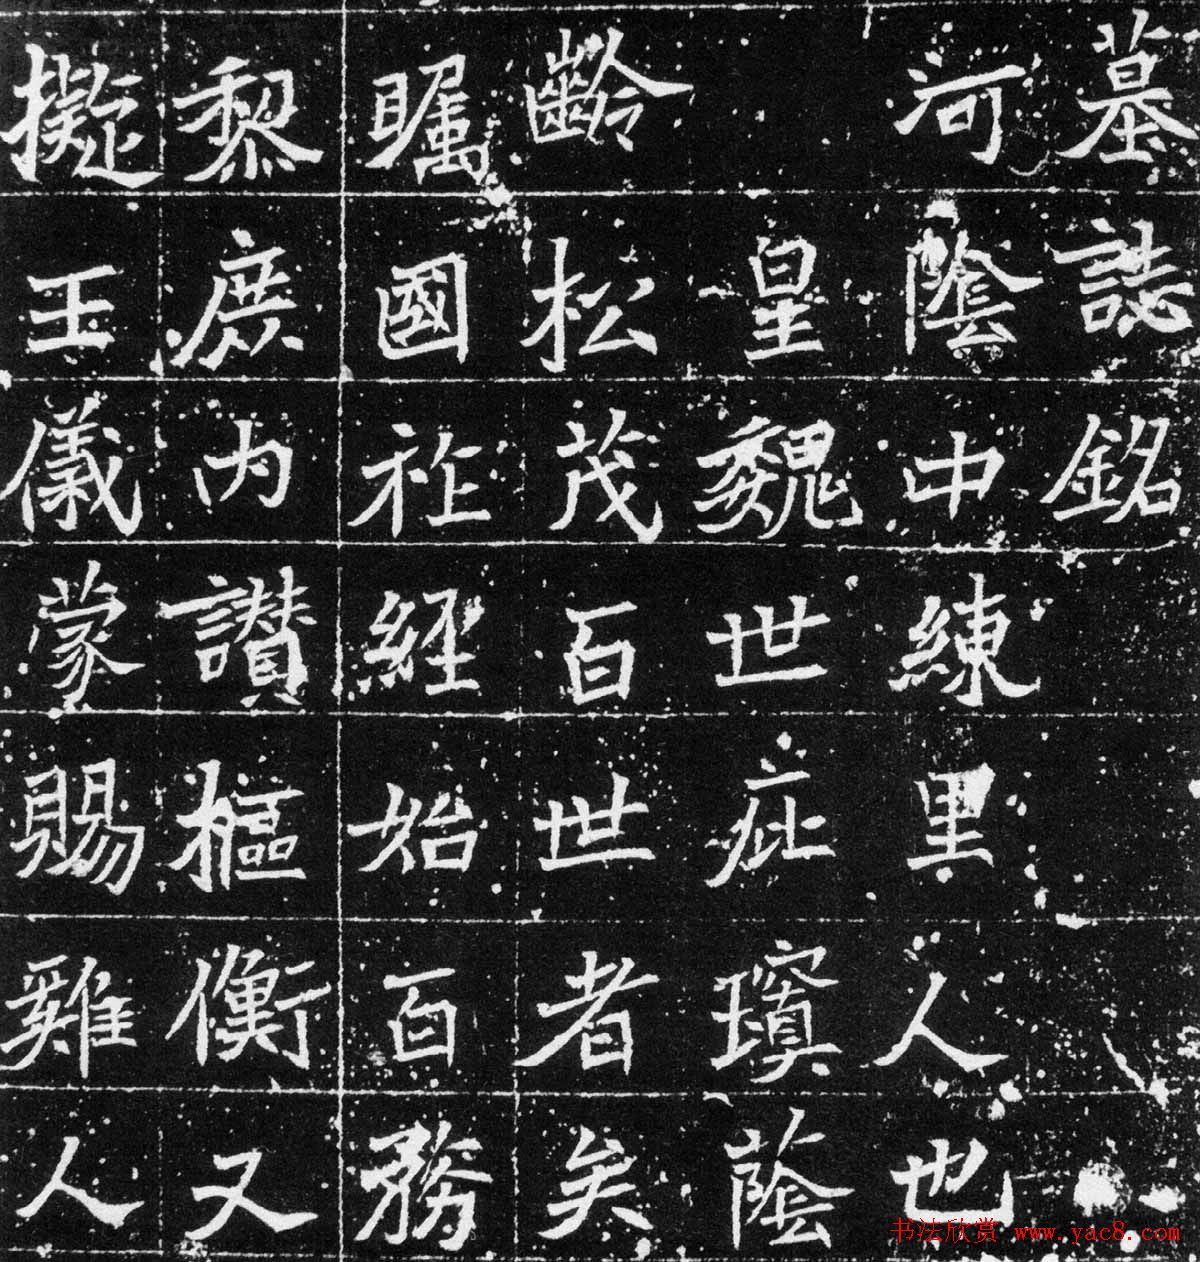 墓誌銘
河陰中練里人也
皇魏世疪瓊蔭
齡松茂百世者矣
矚國祚經始百務
黎庶內讚樞衡又
擬王儀蒙賜雞人
书法欣赏 www.yac8.com